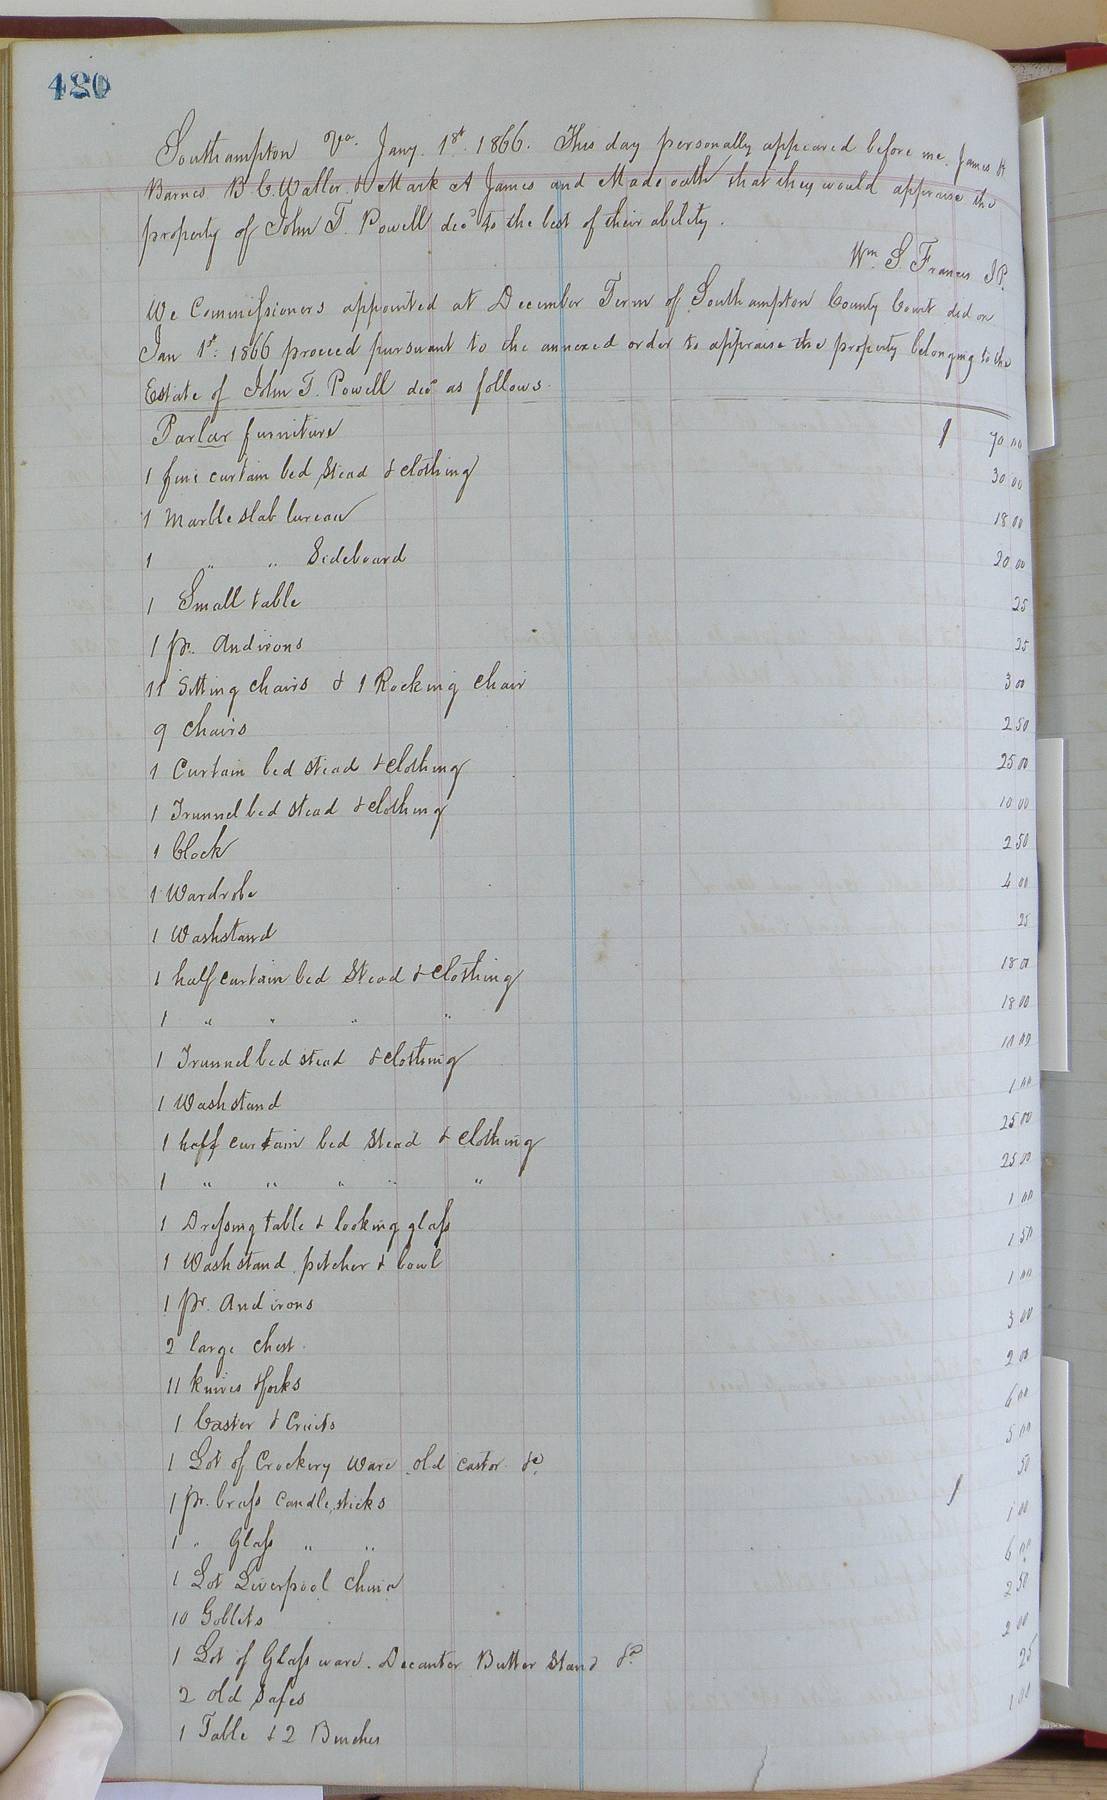 480
Southampton Va. Jany. 1st. 1866. This day personally appeared before me. James H
Barnes B. C. Waller & Mark A James and Made oath that they would appraise the
property of John T. Powell decd to the best of their ability.
Wm. S. Francis J.P.
We Commissioners appointed at December Term of Southampton County Court did on
Jan 1st: 1866 proceed pursuant to the annexed order to appraise the property belonging to the
Estate of John T. Powell decd as follows.
Parlar furniture 70 00
1 fine curtain bed stead & clothing 30 00
1 Marble slab bureau 18 00
1 " " Sideboard 20 00
1 Small table 25
1 pr. Andirons 25
11 Sitting chairs & 1 Rocking chair 3 00
9 chairs 2 50
1 Curtain bed stead & clothing 25 00
1 Trunnel bed stead & clothing 10 00
1 Clock 2 50
1 Wardrobe 4 00
1 Washstand 25
1 half curtain bed Stead & clothing 18 00
1 " " " " 18 00
1 Trunnel bed stead & clothing 10 00
1 Washstand 1 00
1 half curtain bed Stead & clothing 25 00
1 " " " " " 25 00
1 Dressing table & looking glass 1 00
1 Wash stand pitcher & bowl 1 50
1 pr. Andirons 1 00
2 large chest 3 00
11 knives & forks 2 00
1 Caster & Cruits 6 00
1 Lot of Crockery Ware old castor &c. 5 00
1 pr. brass Candle sticks 50
1 " Glass " " 1 00
1 Lot Liverpool China 6 00
10 Goblets 2 50
1 Lot of Glass ware. Decanter Butter Stand &c. 2 00
2 old Safes 25
1 Table & 2 Benches 1 00